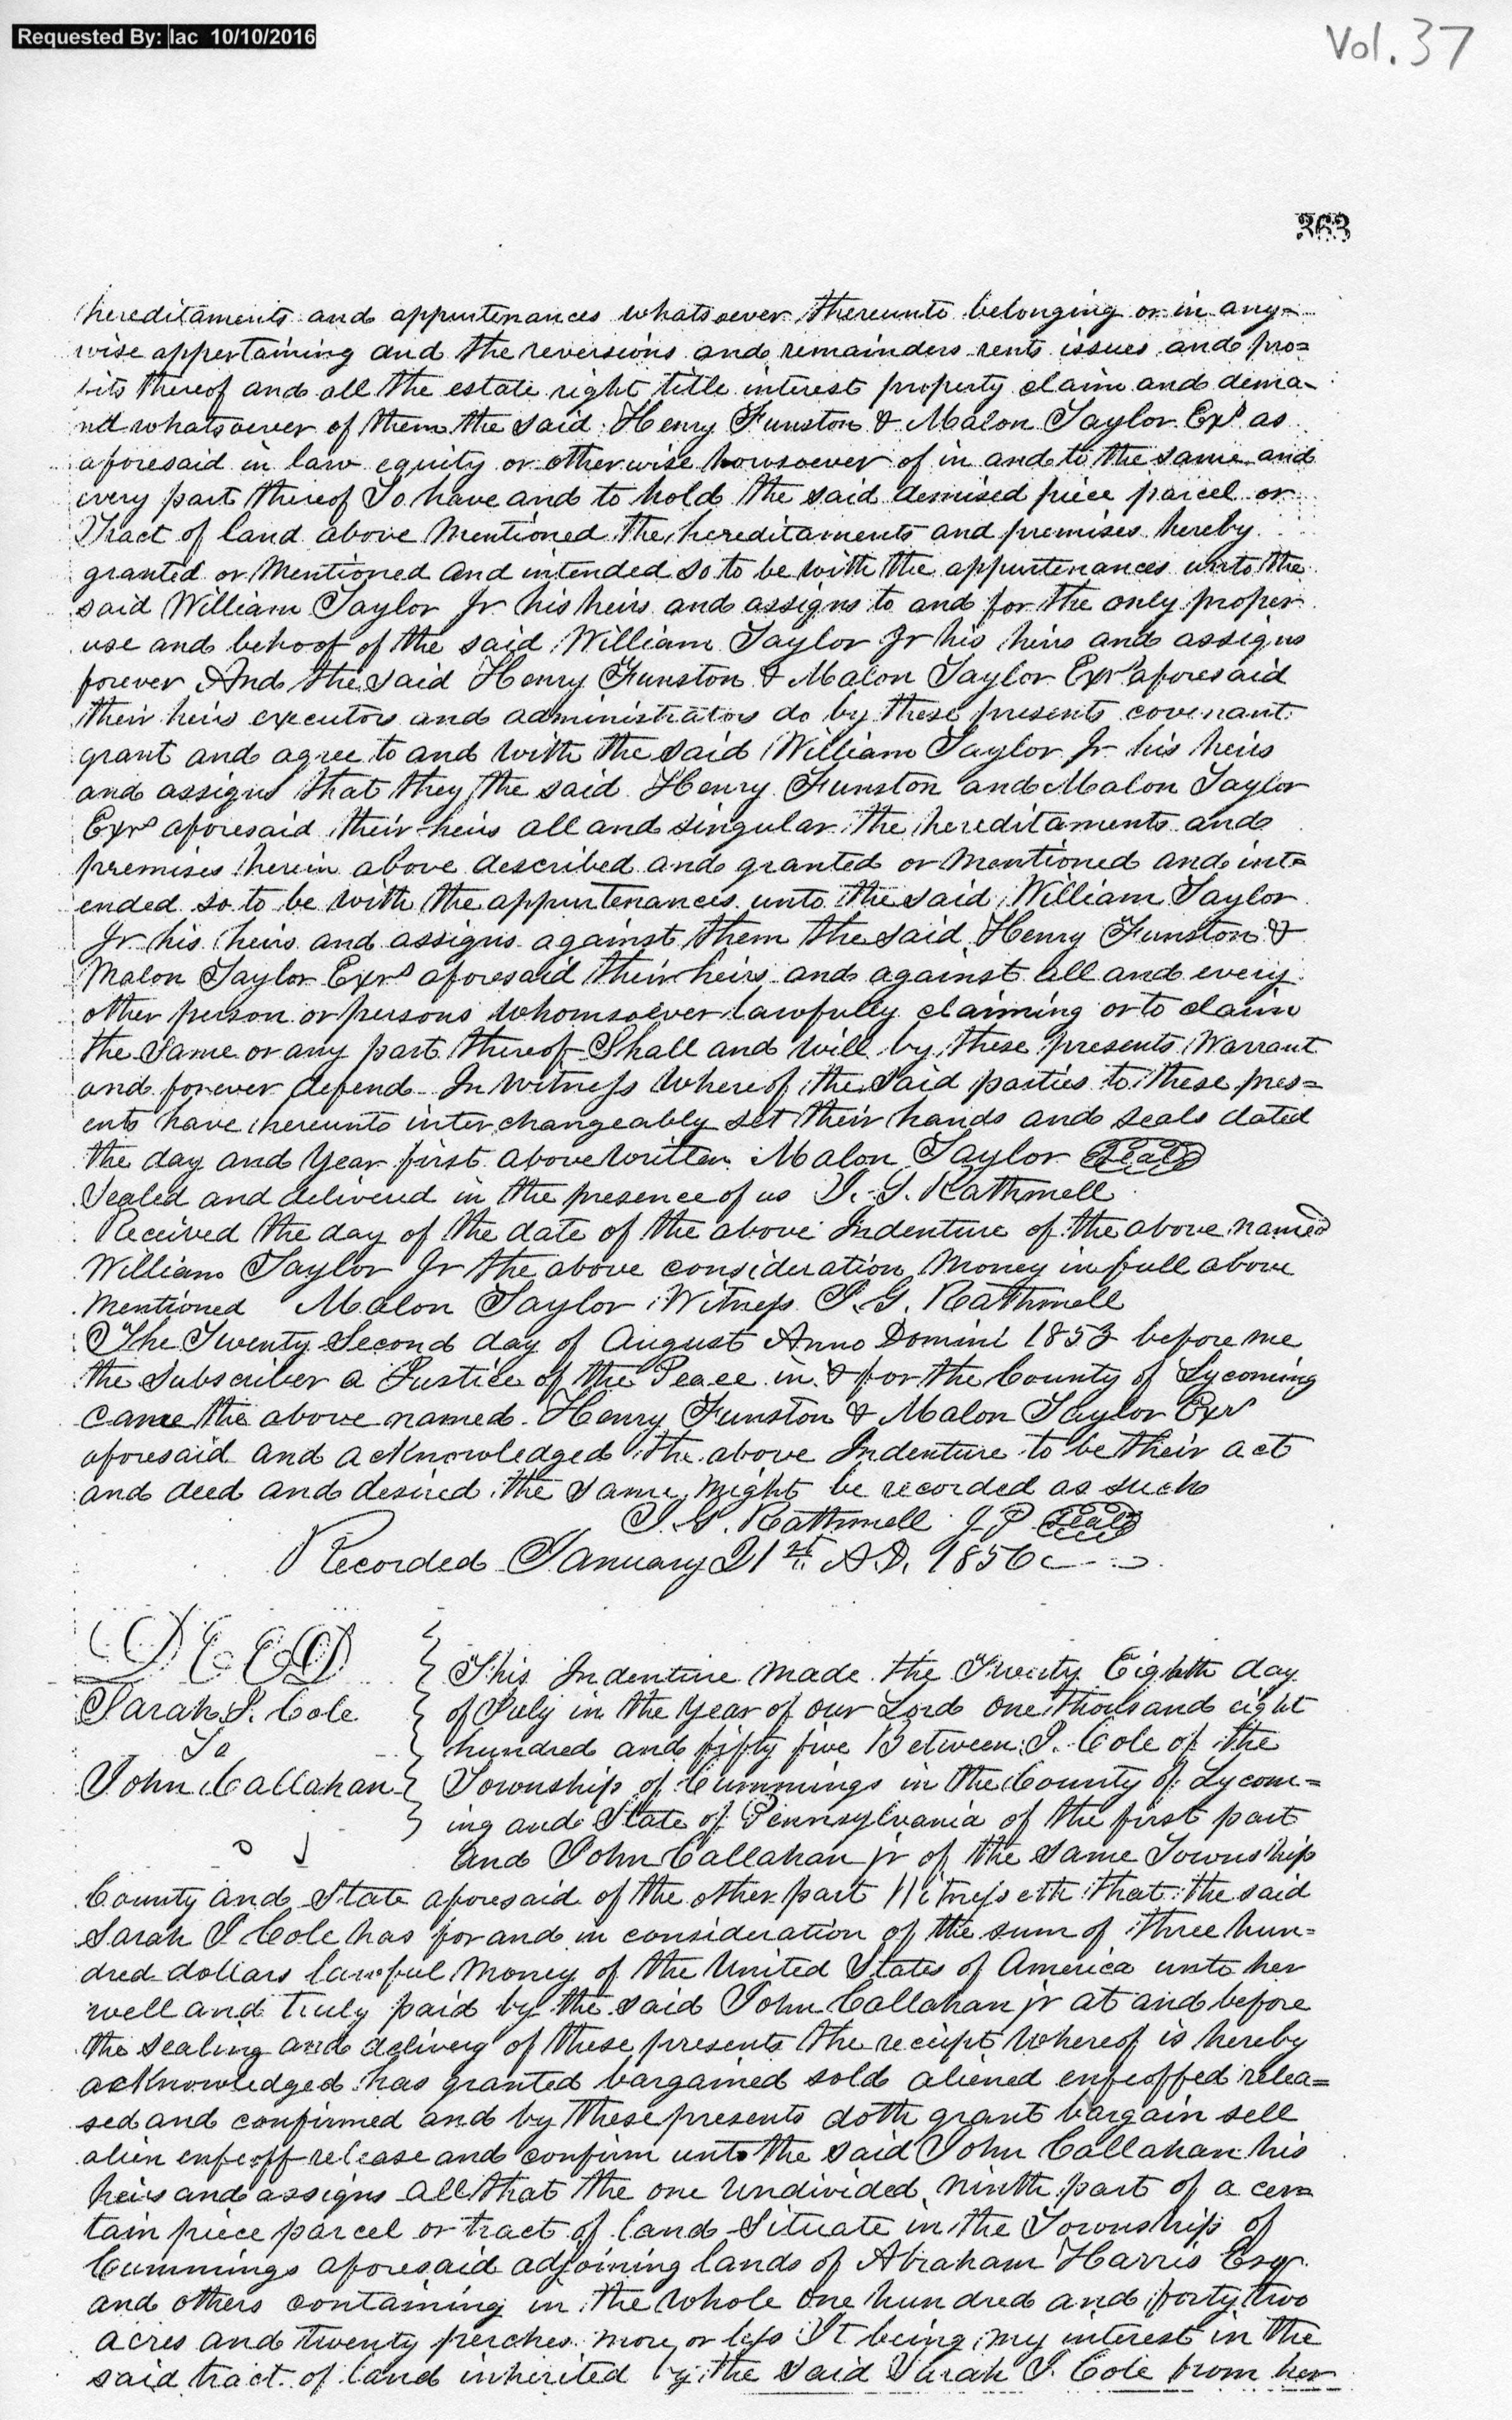 Requested By: lac 10/10/2016
Vol. 37
363
hereditaments and appurtenances whatsoever thereunto belonging or in any-
wise appertaining and the reversions and remainders rents issues and pro=
fits thereof and all the estate right title interest property claim and dema-
nd whatsoever of them the said Henry Funston & Malon Taylor Exrs as
aforesaid in law equity or otherwise howsoever of in and to the same and
every part thereof To have and to hold the said demised piece parcel or
Tract of land above Mentioned the hereditaments and premises hereby
granted or Mentioned and intended so to be with the appurtenances unto the
said William Taylor Jr his heirs and assigns to and for the only proper
use and behoof of the said William Taylor Jr his heirs and assigns
forever And the said Henry Funston & Malon Taylor Exrs aforesaid
their heirs executors and administrators do by these presents covenant
grant and agree to and with the said William Taylor Jr his heirs
and assigns that they the said Henry Funston and Malon Taylor
Exrs aforesaid their heirs all and singular the hereditaments and
premises herein above described and granted or Mentioned and int=
ended so to be with the appurtenances unto the said William Taylor
Jr his heirs and assigns against them the said Henry Funston &
Malon Taylor Exrs aforesaid their heirs and against all and every
other person or persons whomsoever lawfully claiming or to claim
the same or any part thereof Shall and will by these presents Warrant
and forever defend In Witness Whereof the said parties to these pres=
ents have hereunto interchangeably set their hands and seals dated
the day and Year first above written Malon Taylor Seal
Sealed and delivered in the presence of us I. G. Rathmell
Received the day of the date of the above Indenture of the above named
William Taylor Jr the above consideration Money in full above
Mentioned Malon Taylor Witness I. G. Rathmell
The Twenty Second day of August Anno Domini 1853 before me
the Subscriber a Justice of the Peace in & for the County of Lycoming
Came the above named Henry Funston & Malon Taylor Exrs
aforesaid and acknowledged the above Indenture to be their act
and deed and desired the same might be recorded as such
I. G. Rathmell J P Seal
Recorded January 21st A.D. 1856
DEED
Sarah I. Cole
To
John Callahan
This Indenture Made the Twenty Eighth day
of July in the Year of our Lord one thousand eight
hundred and fifty five Between I. Cole of the
Township of Cummings in the County of Lycom=
ing and State of Pennsylvania of the first part
and John Callahan jr of the same Township
County and State aforesaid of the other part Witnesseth that the said
Sarah I Cole has for and in consideration of the sum of three hun=
dred dollars lawful Money of the United States of America unto her
well and truly paid by the said John Callahan jr at and before
the sealing and delivery of these presents the receipt whereof is hereby
acknowledged has granted bargained sold aliened enfeoffed relea=
sed and confirmed and by these presents doth grant bargain sell
alien enfeoff release and confirm unto the said John Callahan his
heirs and assigns all that the one undivided ninth part of a cer=
tain piece parcel or tract of land Situate in the Township of
Cummings aforesaid adjoining lands of Abraham Harris Esqr.
and others containing in the whole one hundred and forty two
acres and twenty perches more or less It being my interest in the
said tract of land inherited by the said Sarah I. Cole from her